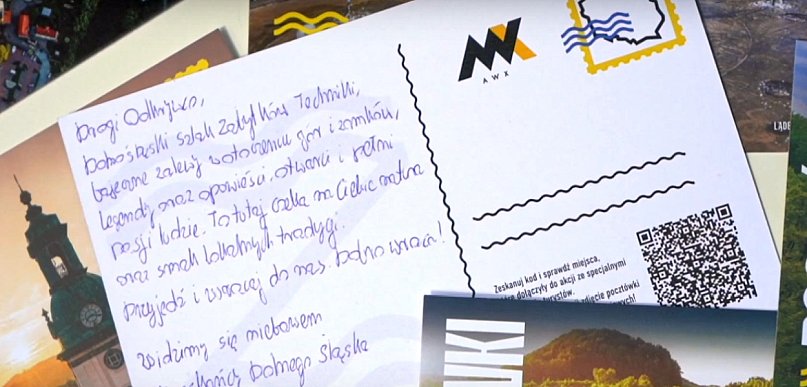 Drogi Odkrywco,
Dolnośląski Szlak Zabytków Techniki,
zalewy w otoczeniu gór i zamków,
legendy, oraz opowieści, otwarci i pełni
pasji ludzie. To tutaj czeka na Ciebie natura
oraz smak lokalnych tradycji.
Przyjedź i wracaj do nas.
widzimy się niebawem
Dolnego Śląska
AWX
LĄDE
Zeskanuj kod i sprawdź miejsca,
dołączyły do akcji ze specjalnymi
turystów.
pocztówki
UKI